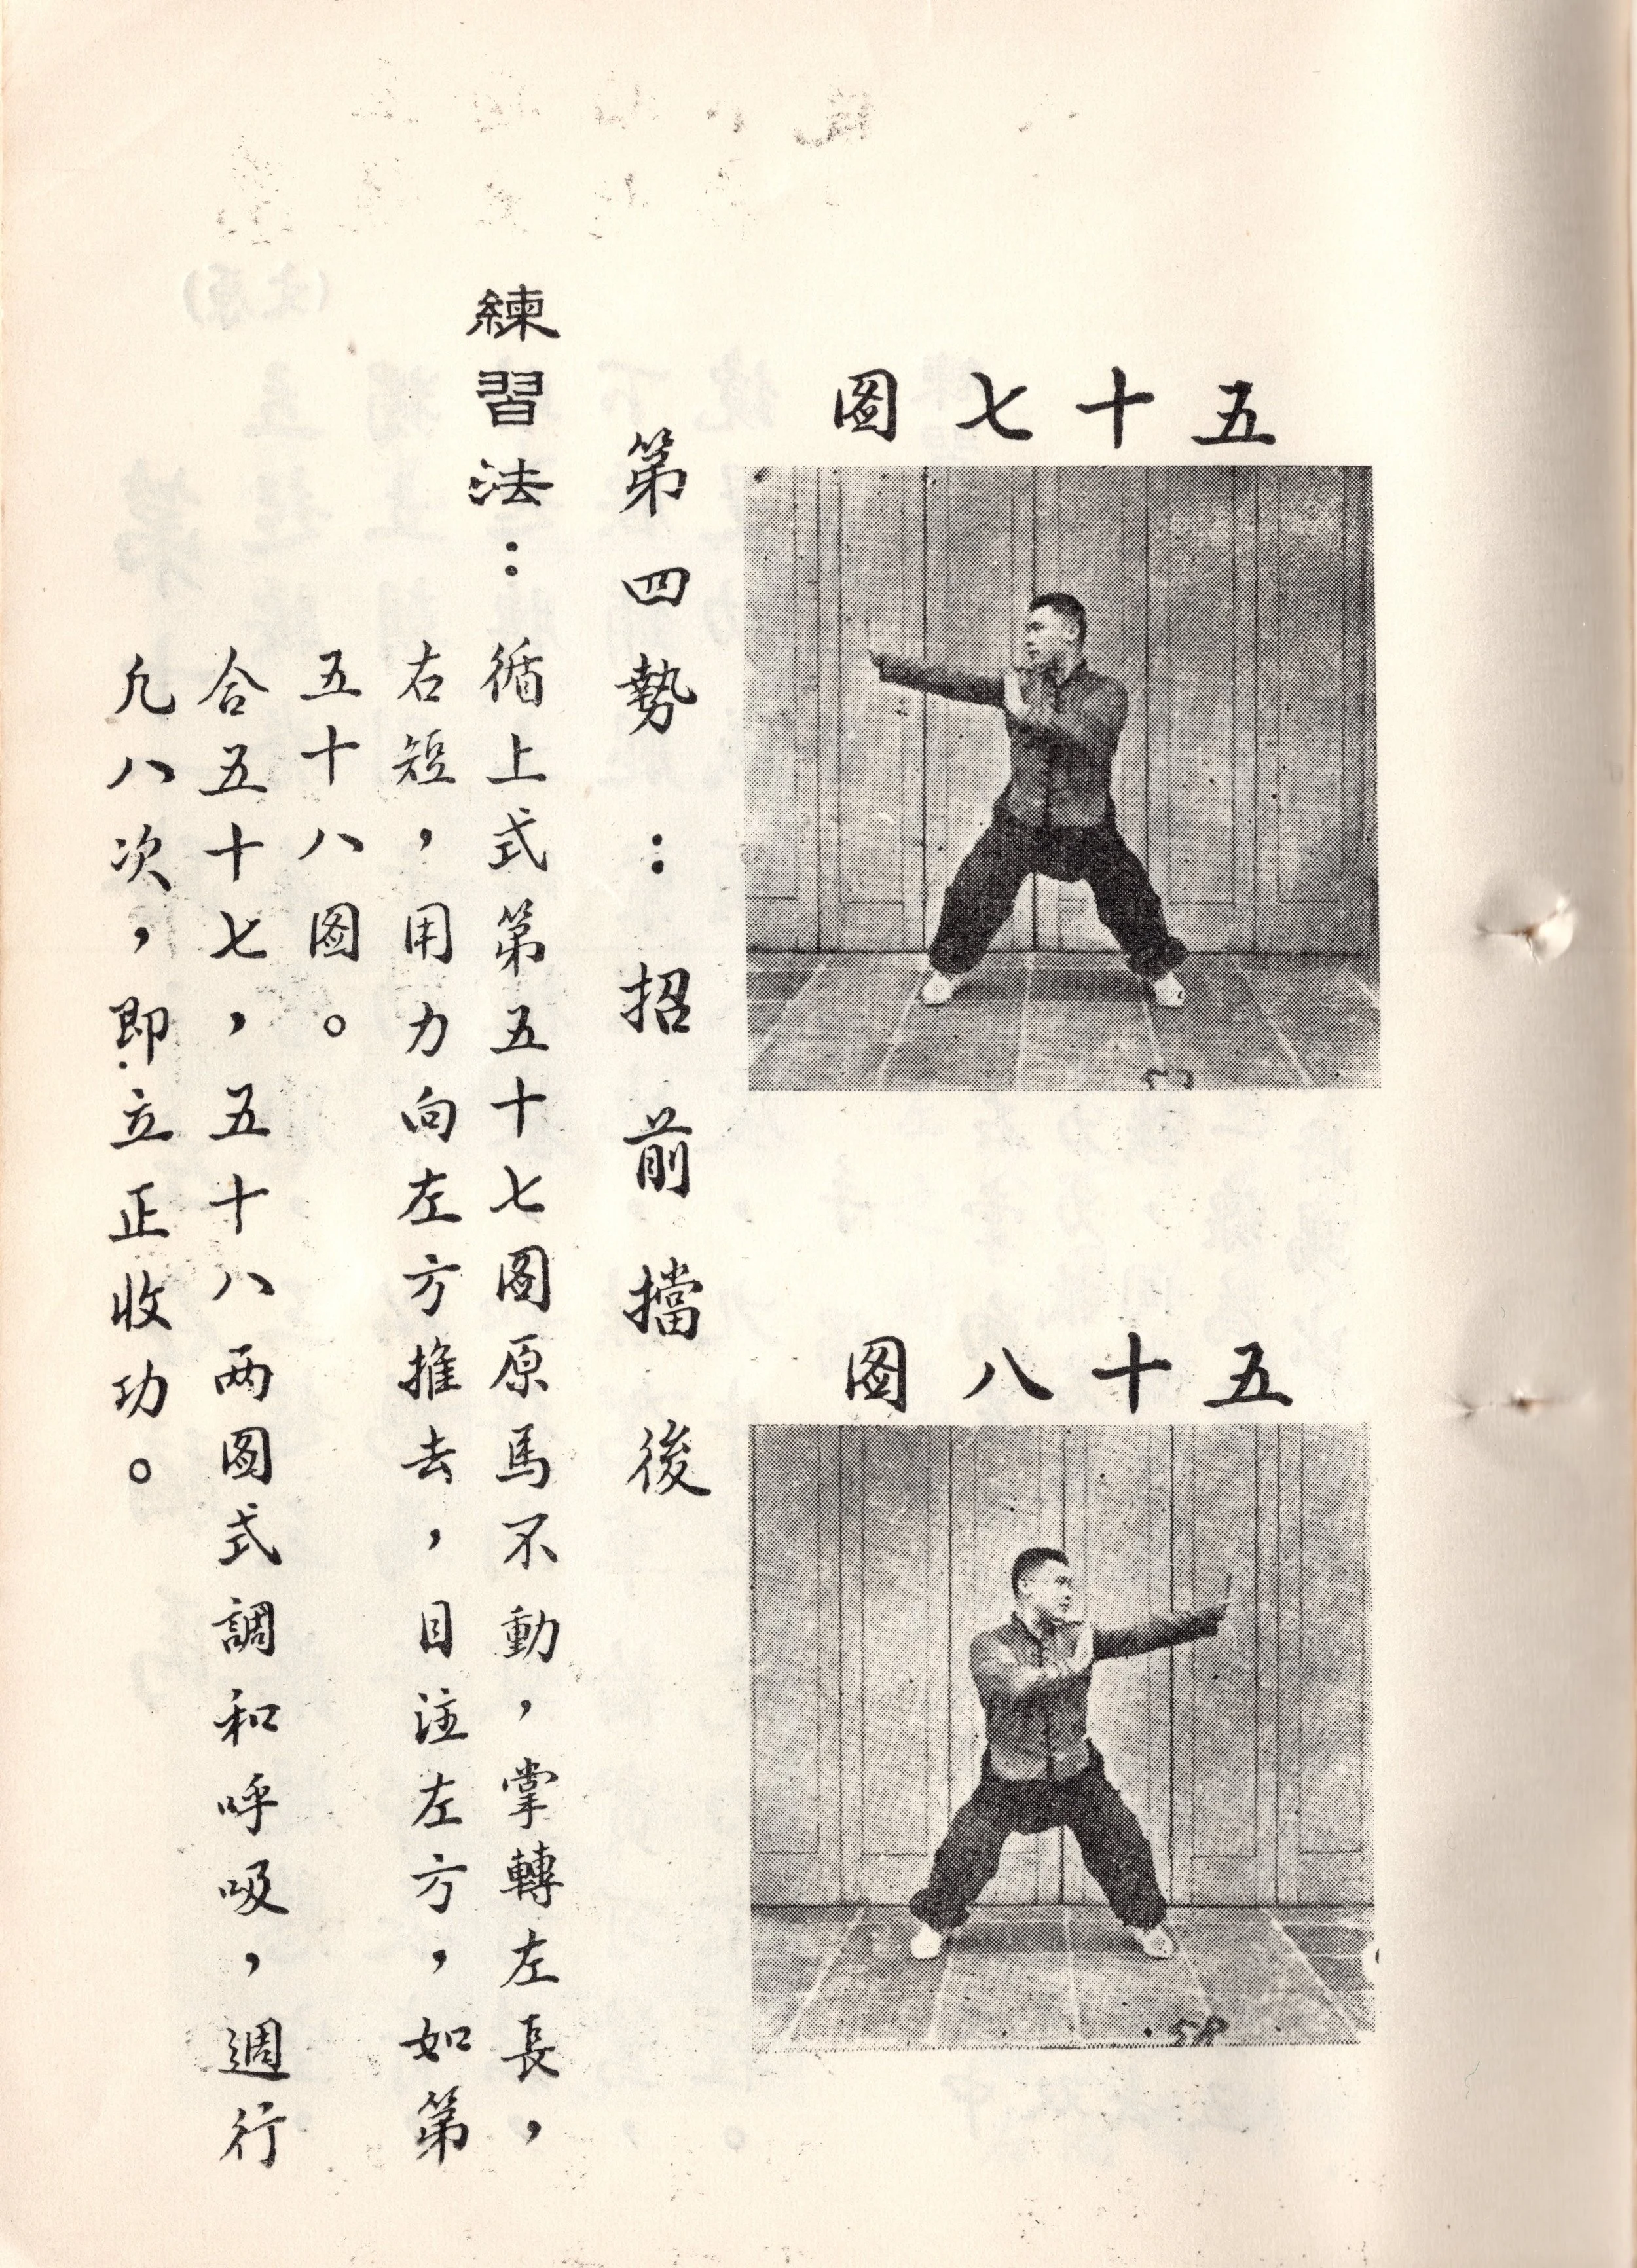 五十七圖
五十八圖
57
58
第四勢：招前擋後
練習法：循上式第五十七圖原馬不動，掌轉左長，
右短，用力向左方推去，目注左方，如第
五十八圖。
合五十七，五十八两圖式調和呼吸，週行
九八次，即立正收功。